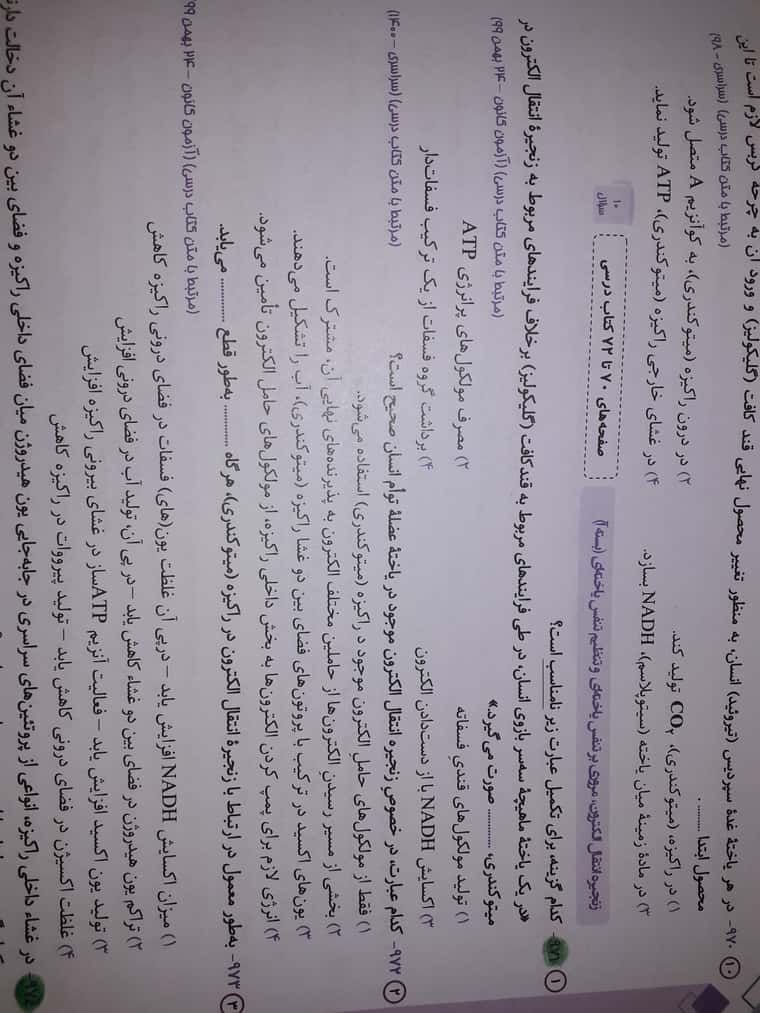 ۱۰ ۹۷۰- در هر یاختهٔ غدهٔ سپردیس (تیروئید) انسان، به منظور تغییر محصول نهایی قند کافت (گلیکولیز) و ورود آن به چرخه کربس لازم است تا این
محصول ابتدا ......... . (مرتبط با متن کتاب درسی) (سراسری – ۹۸)
۱) در راکیزه، (میتوکندری)، CO₂ تولید کند. ۲) در درون راکیزه (میتوکندری)، به کوآنزیم A متصل شود.
۳) در مادهٔ زمینهٔ میان یاخته (سیتوپلاسم)، NADH بسازد. ۴) در غشای خارجی راکیزه (میتوکندری)، ATP تولید نماید.
زنجیرهٔ انتقال الکترون، مروری بر تنفس یاخته‌ای و تنظیم تنفس یاخته‌ای (بسته آ) صفحه‌های ۷۰ تا ۷۲ کتاب درسی ۱۰ سؤال
۱ ۹۷۱- کدام گزینه، برای تکمیل عبارت زیر نامناسب است؟
«در یک یاختهٔ ماهیچهٔ سه‌سر بازوی انسان، در طی فرایندهای مربوط به قندکافت (گلیکولیز) برخلاف فرایندهای مربوط به زنجیرهٔ انتقال الکترون در
میتوکندری، .......... صورت می‌گیرد.» (مرتبط با متن کتاب درسی) (آزمون کانون – ۲۴ بهمن ۹۹)
۱) تولید مولکول‌های قندیِ فسفاته ۲) مصرف مولکول‌های پرانرژی ATP
۳) اکسایش NADH با از دست‌دادن الکترون ۴) برداشت گروه فسفات از یک ترکیب فسفات‌دار
۲ ۹۷۲- کدام عبارت، در خصوص زنجیره انتقال الکترون موجود در یاختهٔ عضلهٔ توأم انسان صحیح است؟ (مرتبط با متن کتاب درسی) (سراسری – ۱۴۰۰)
۱) فقط از مولکول‌های حامل الکترون موجود در راکیزه (میتوکندری) استفاده می‌شود.
۲) بخشی از مسیر رسیدنِ الکترون‌ها از حاملین مختلف الکترون به پذیرنده‌های نهایی آن، مشترک است.
۳) یون‌های اکسید در ترکیب با پروتون‌های فضای بین دو غشا راکیزه (میتوکندری)، آب را تشکیل می‌دهند.
۴) انرژی لازم برای پمپ کردن الکترون‌ها به بخش داخلی راکیزه، از مولکول‌های حامل الکترون تأمین می‌شود.
۳ ۹۷۳- به‌طور معمول در ارتباط با زنجیرهٔ انتقال الکترون در راکیزه (میتوکندری)، هرگاه .......... به‌طور قطع .......... می‌یابد.
(مرتبط با متن کتاب درسی) (آزمون کانون – ۲۴ بهمن ۹۹
۱) میزان اکسایش NADH افزایش یابد – درپی آن غلظت یون(های) فسفات در فضای درونی راکیزه کاهش
۲) تراکم یون هیدروژن در فضای بین دو غشاء کاهش یابد – در پی آن، تولید آب در فضای درونی افزایش
۳) تولید یون اکسید افزایش یابد – فعالیت آنزیم ATPساز در غشای بیرونی راکیزه افزایش
۴) غلظت اکسیژن در فضای درونی کاهش یابد – تولید پیرووات در راکیزه کاهش
۹۷۴- در غشاء داخلی راکیزه، انواعی از پروتئین‌های سراسری در جابه‌جایی یون هیدروژن میان فضای داخلی راکیزه و فضای بین دو غشاء آن دخالت دارند